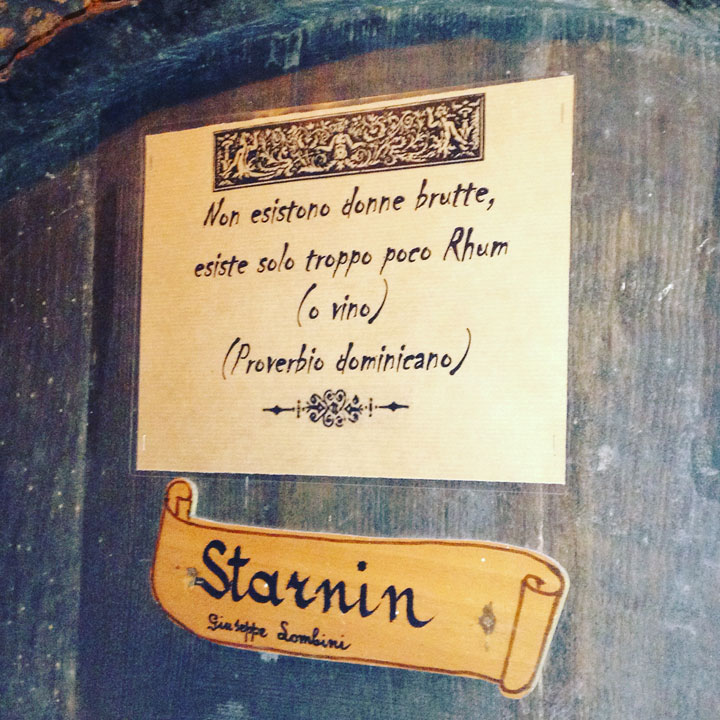 Non esistono donne brutte,
esiste solo troppo poco Rhum
(o vino)
(Proverbio dominicano)
Starnin
Giuseppe Lombini